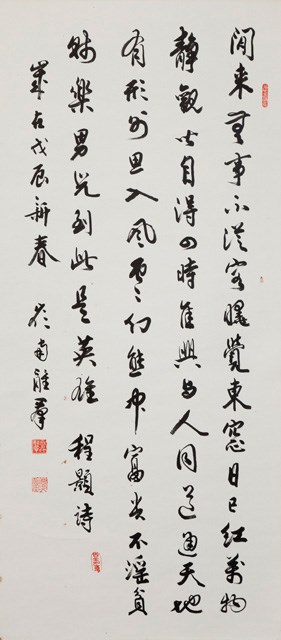 閒來無事不從容睡覺東窗日已紅萬物
靜觀皆自得四時佳興與人同道通天地
有形外思入風雲幻態中富貴不淫貧
賤樂男兒到此是英雄 程顥詩
歲在戊辰新春 南羣